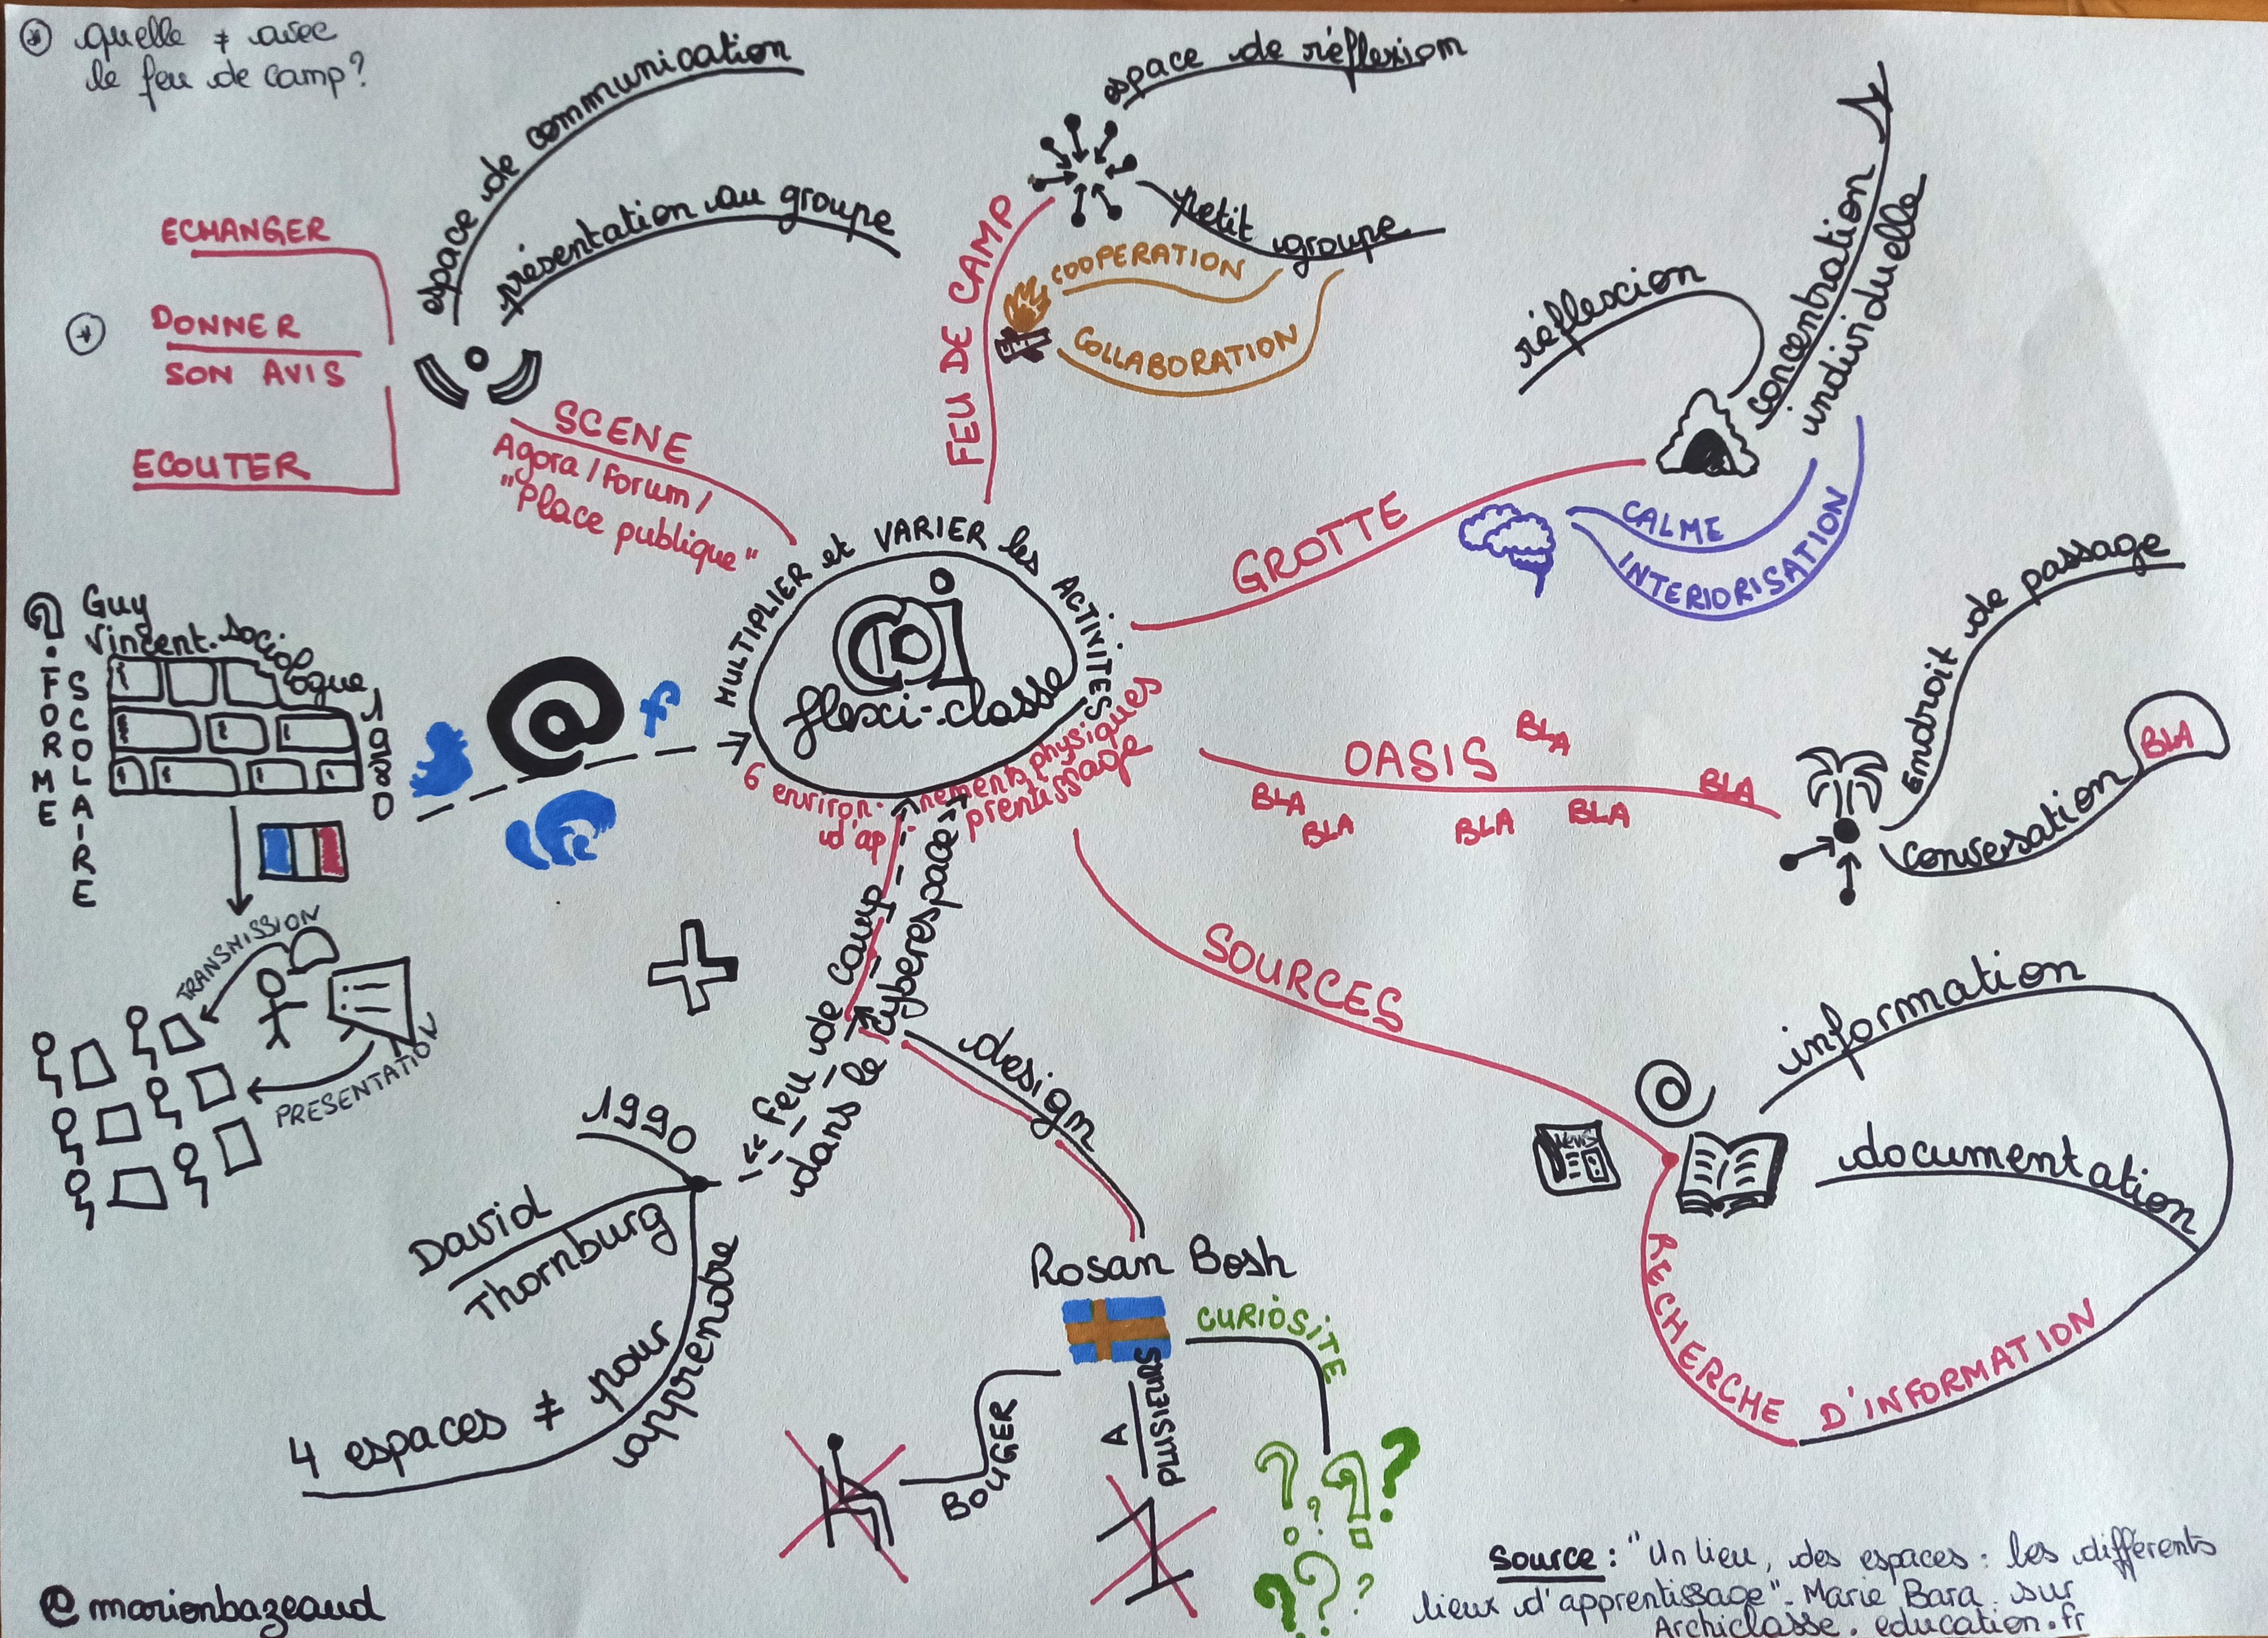 * quelle ≠ avec
le feu de camp?
espace de communication
présentation au groupe
ECHANGER
*
DONNER
SON AVIS
ECOUTER
SCENE
Agora / Forum /
"Place publique"
espace de réflexion
petit groupe
FEU DE CAMP
COOPERATION
COLLABORATION
réflexcion
concentration
individuelle
GROTTE
CALME
INTERIORISATION
Endroit de passage
conversation
BLA
OASIS
BLA
BLA
BLA
BLA
BLA
BLA
MULTIPLIER et VARIER les ACTIVITES
flexi-classe
6 environ-nements physiques
d'ap-prentissage
Guy
Vincent. sociologue
FORME
SCOLAIRE
1980
@
f
TRANSMISSION
PRESENTATION
"feu de camp
dans le cyberespace"
1990
David
Thornburg
4 espaces ≠ pour apprendre
design
Rosan Bosh
BOUGER
A
PLUSIEURS
CURIOSITE
? ? ?
SOURCES
@
NEWS
information
documentation
RECHERCHE D'INFORMATION
@marionbazeaud
Source : "Un lieu, des espaces : les différents
lieux d'apprentissage" - Marie Bara sur
Archiclasse.education.fr